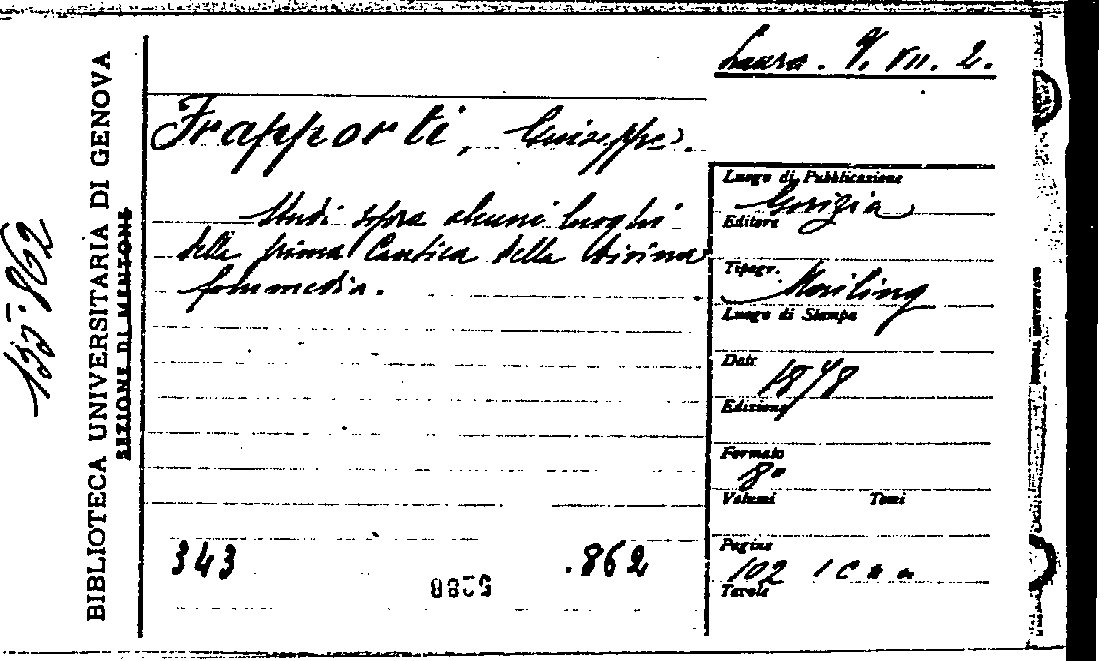 Laura. V. VII. 2.
Frapporti, Giuseppe.
Studi sopra alcuni luoghi
della prima Cantica della Divina
Commedia.
Luogo di Pubblicazione
Gorizia
Editore
Tipogr.
Luogo di Stampa
Data
Edizione
Formato
8°
Volumi Tomi
Pagine
102
Tavole
343 .862
BIBLIOTECA UNIVERSITARIA DI GENOVA
SEZIONE DI MENTONE
155-862